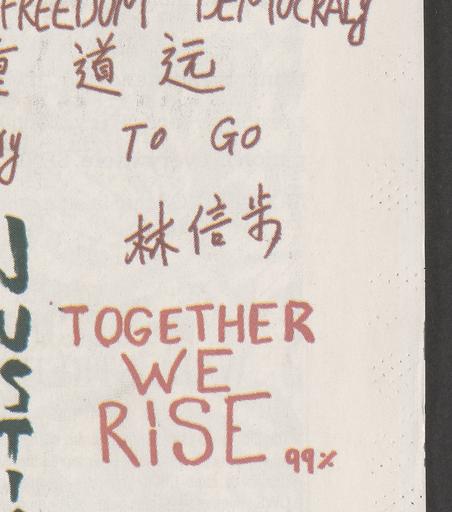 FREEDOM DEMOCRACY
重道远
To Go
林信步
JUSTI
TOGETHER
WE
RISE 99%